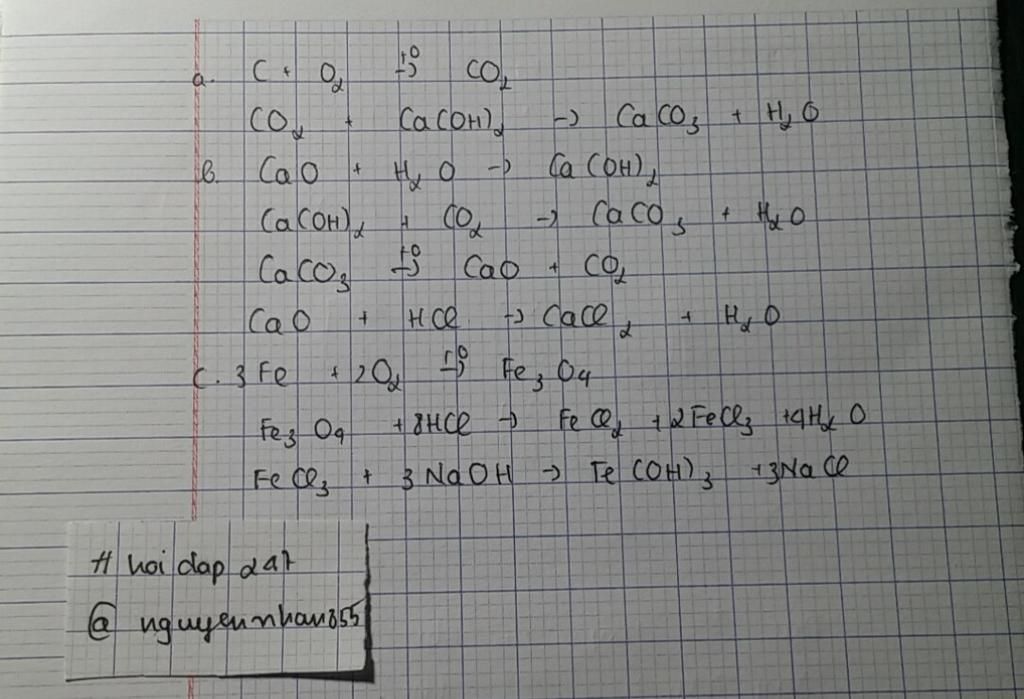 a. C + O₂ →(t⁰) CO₂
CO₂ + Ca(OH)₂ → CaCO₃ + H₂O
b. CaO + H₂O → Ca(OH)₂
Ca(OH)₂ + CO₂ → CaCO₃ + H₂O
CaCO₃ →(t⁰) CaO + CO₂
CaO + HCl → CaCl₂ + H₂O
c. 3Fe + 2O₂ →(t⁰) Fe₃O₄
Fe₃O₄ + 8HCl → FeCl₂ + 2FeCl₃ + 4H₂O
FeCl₃ + 3NaOH → Fe(OH)₃ + 3NaCl
# hoi dap 247
@ nguyennhan855